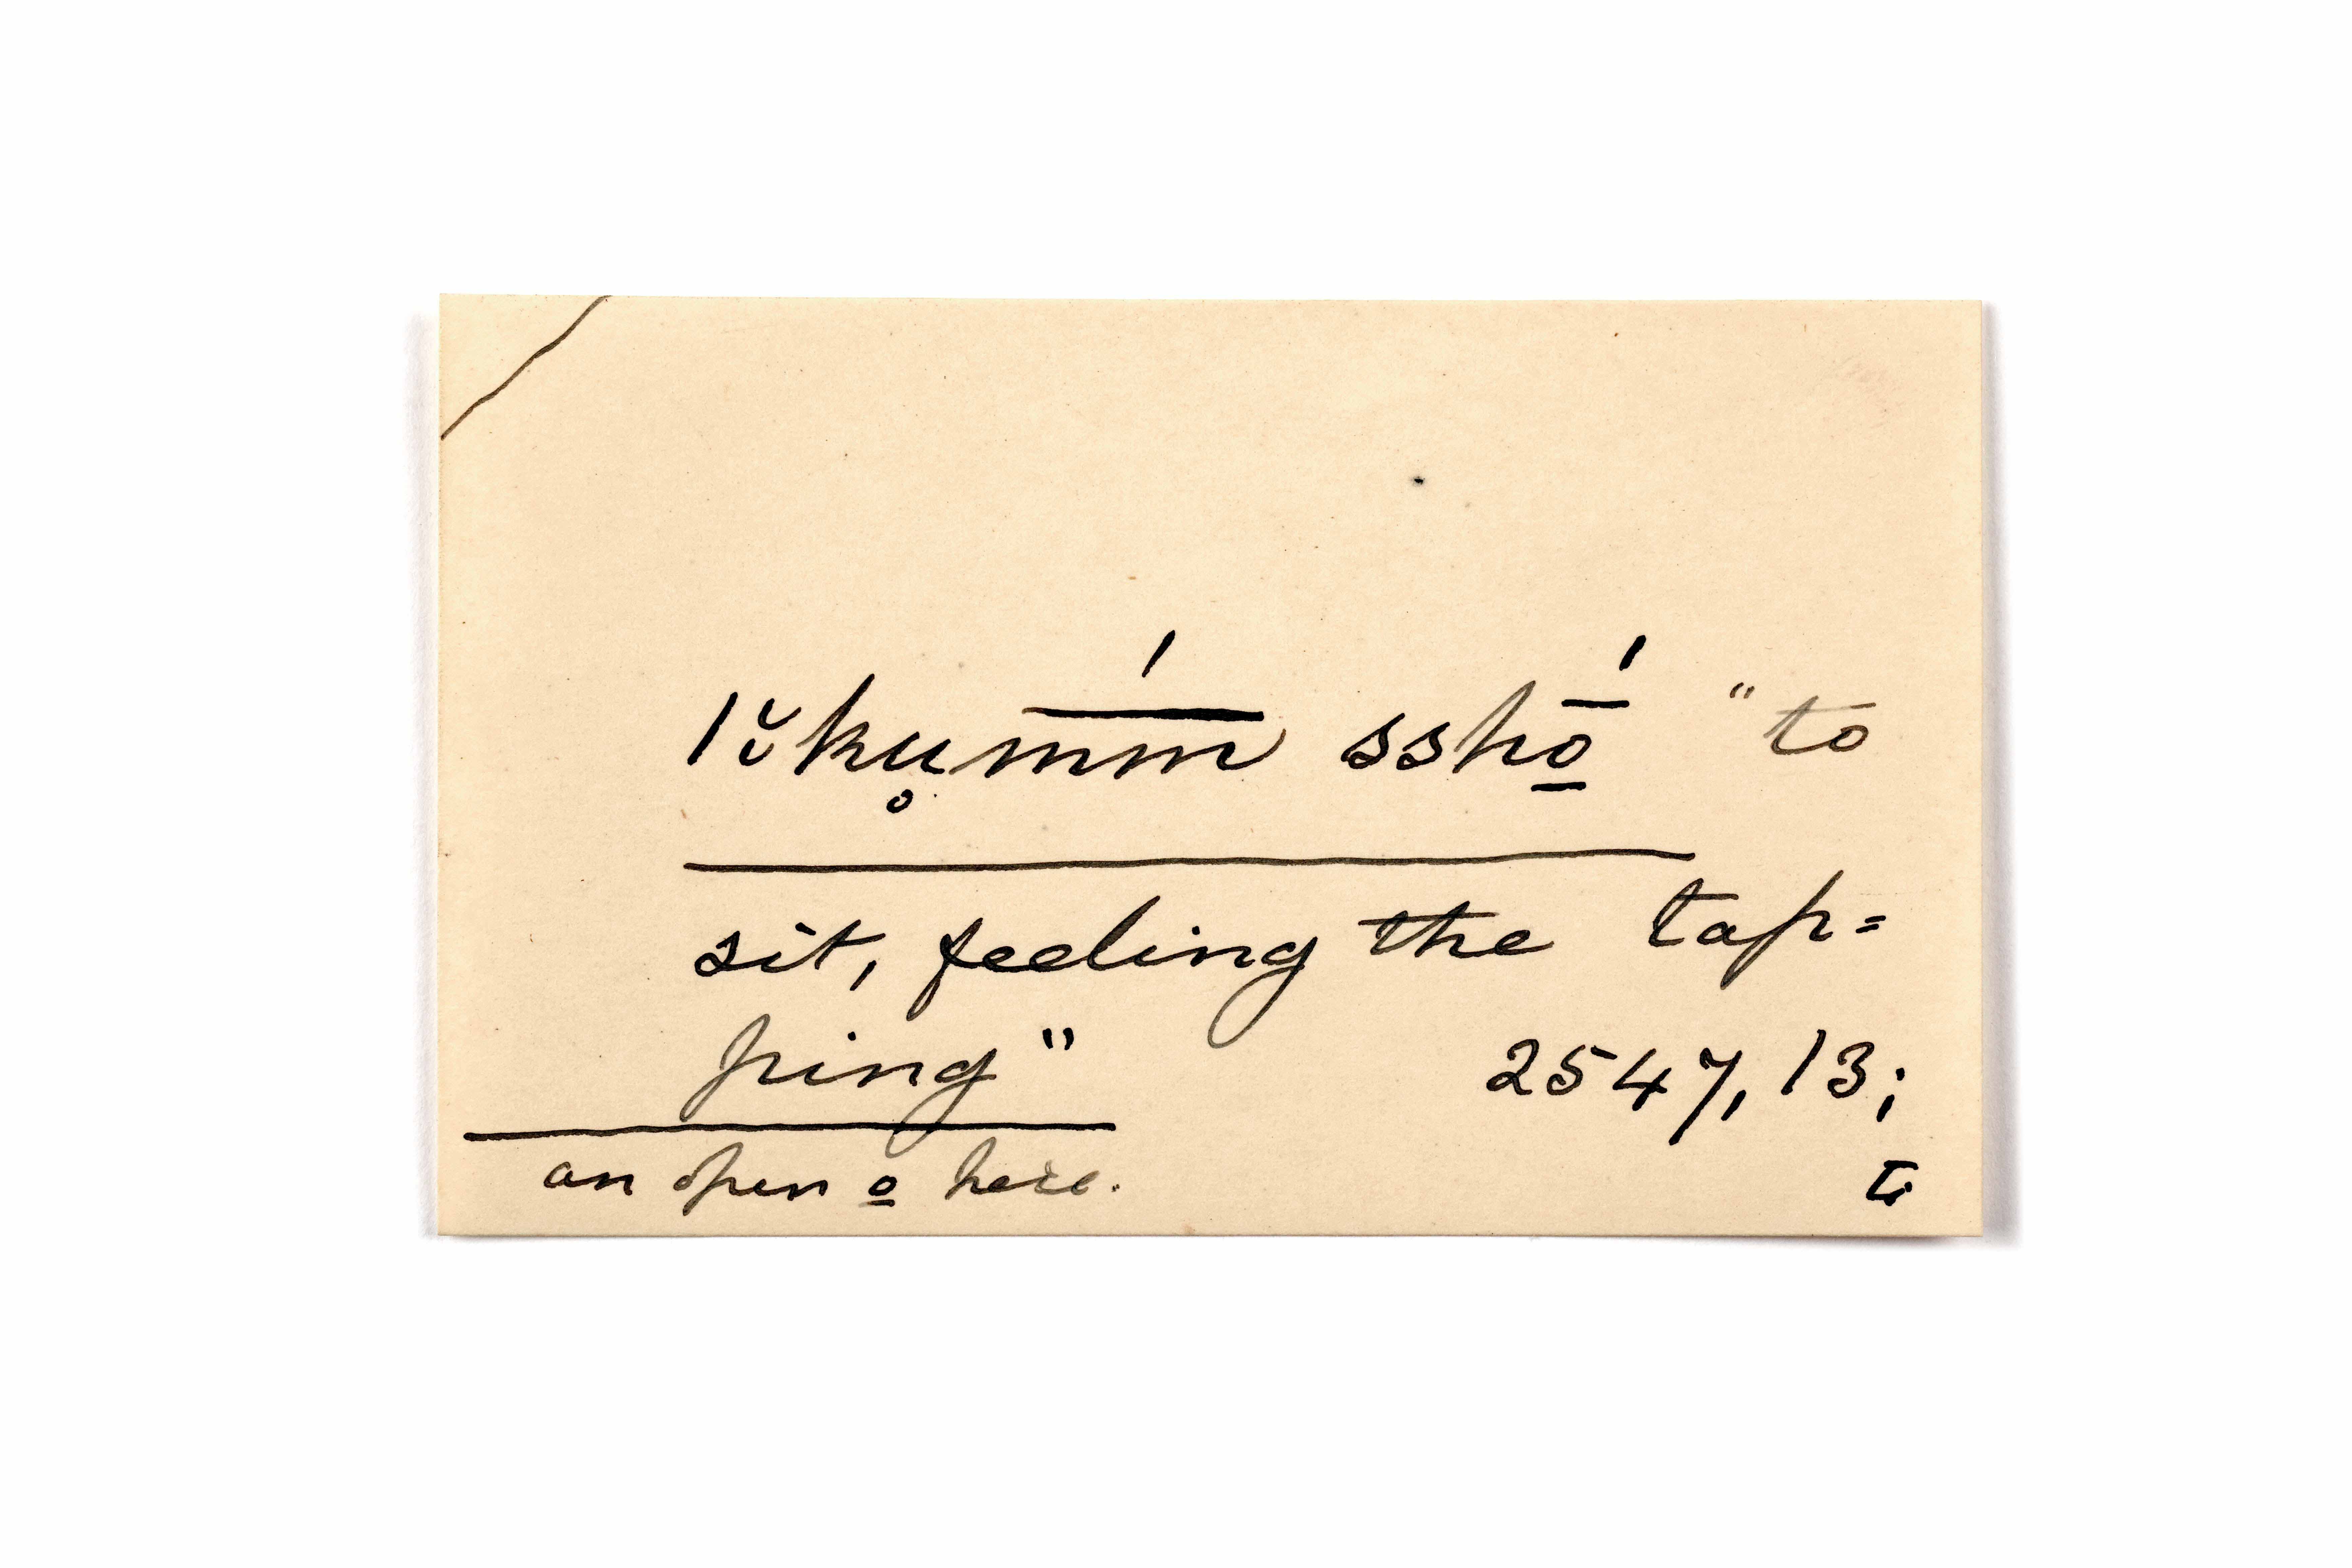 ǀĭku̥m̄́m̄ sshṓ̱ "to
sit, feeling the tap=
ping" 2547, 13;
an open o̱ here.